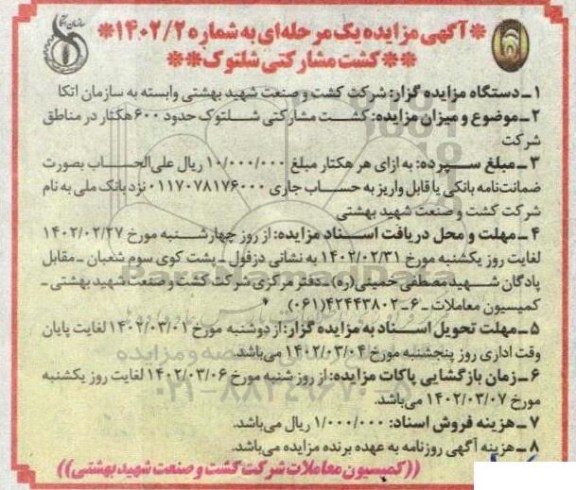 *آگهی مزایده یک مرحله‌ای به شماره ۱۴۰۲/۲*
**کشت مشارکتی شلتوک**
۱ـ دستگاه مزایده گزار: شرکت کشت و صنعت شهید بهشتی وابسته به سازمان اتکا
۲ـ موضوع و میزان مزایده: کشت مشارکتی شلتوک حدود ۶۰۰ هکتار در مناطق
شرکت
۳ـ مبلغ سپرده: به ازای هر هکتار مبلغ ۱۰/۰۰۰/۰۰۰ ریال علی‌الحساب بصورت
ضمانت‌نامه بانکی یا قابل واریز به حساب جاری ۰۱۱۷۰۷۸۱۷۶۰۰۰ نزد بانک ملی به نام
شرکت کشت و صنعت شهید بهشتی
۴ـ مهلت و محل دریافت اسناد مزایده: از روز چهارشنبه مورخ ۱۴۰۲/۰۲/۲۷
لغایت روز یکشنبه مورخ ۱۴۰۲/۰۲/۳۱ به نشانی دزفول ـ پشت کوی سوم شعبان ـ مقابل
پادگان شهید مصطفی خمینی(ره) ـ دفتر مرکزی شرکت کشت و صنعت شهید بهشتی ـ
کمیسیون معاملات ـ ۶ـ۴۲۴۴۳۸۰۲(۰۶۱)
۵ـ مهلت تحویل اسناد به مزایده گزار: از دوشنبه مورخ ۱۴۰۲/۰۳/۰۱ لغایت پایان
وقت اداری روز پنجشنبه مورخ ۱۴۰۲/۰۳/۰۴ می‌باشد.
۶ـ زمان بازگشایی پاکات مزایده: از روز شنبه مورخ ۱۴۰۲/۰۳/۰۶ لغایت روز یکشنبه
مورخ ۱۴۰۲/۰۳/۰۷ می‌باشد.
۷ـ هزینه فروش اسناد: ۱/۰۰۰/۰۰۰ ریال می‌باشد.
۸ـ هزینه آگهی روزنامه به عهده برنده مزایده می‌باشد.
((کمیسیون معاملات شرکت کشت و صنعت شهید بهشتی))
ParsNamadData
۰۲۱-۸۸۳۴۹۶۷۰